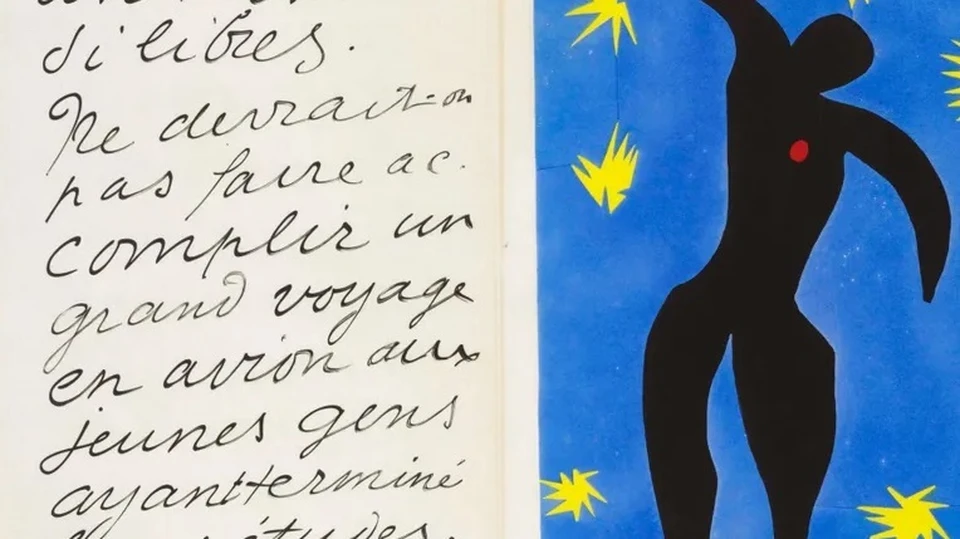 si libres.
Ne devrait-on
pas faire ac-
complir un
grand voyage
en avion aux
jeunes gens
ayant terminé
études.